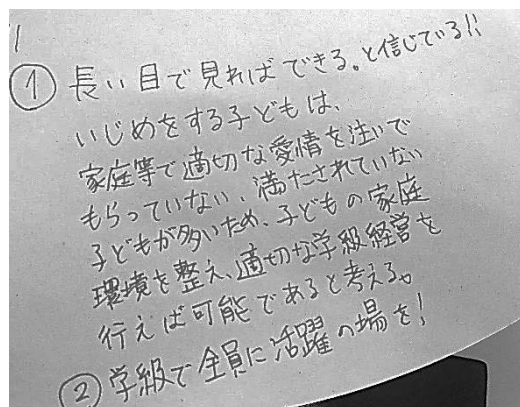 ① 長い目で見ればできる。と信じている!!
いじめをする子どもは、
家庭等で適切な愛情を注いで
もらっていない、満たされていない
子どもが多いため、子どもの家庭
環境を整え、適切な学級経営を
行えば可能であると考える。
② 学級で全員に活躍の場を!